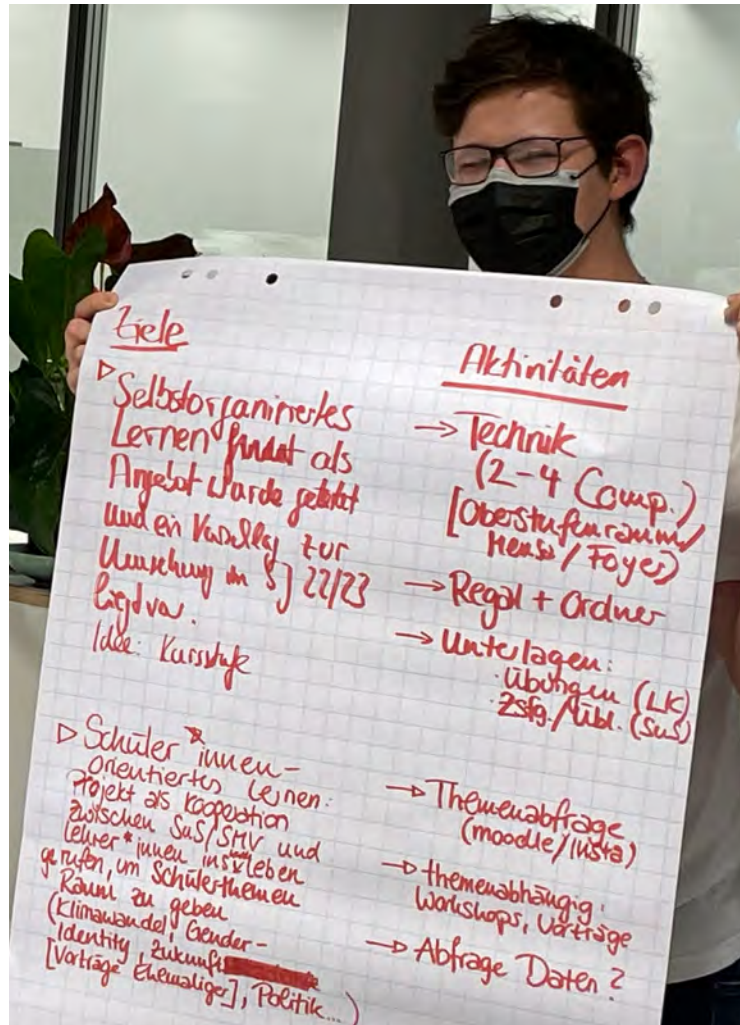 Ziele
▷ Selbstorganisiertes
Lernen findet als
Angebot wurde getestet
und ein Vorschlag zur
Umsetzung im SJ 22/23
liegt vor.
Idee: Kursstufe
▷ Schüler*innen-
orientiertes Lernen:
Projekt als Kooperation
zwischen SuS/SMV und
Lehrer*innen ins Leben
gerufen, um Schülerthemen
Raum zu geben
(Klimawandel, Gender-
Identity, Zukunft
[Vorträge Ehemaliger], Politik...)
Aktivitäten
→ Technik
(2-4 Comp.)
[Oberstufenraum/
Mensa/Foyer)
→ Regal + Ordner
→ Unterlagen:
· Übungen (LK)
· Zsfg./Übl. (SuS)
→ Themenabfrage
(moodle/Insta)
→ themenabhängig:
Workshops, Vorträge
→ Abfrage Daten?